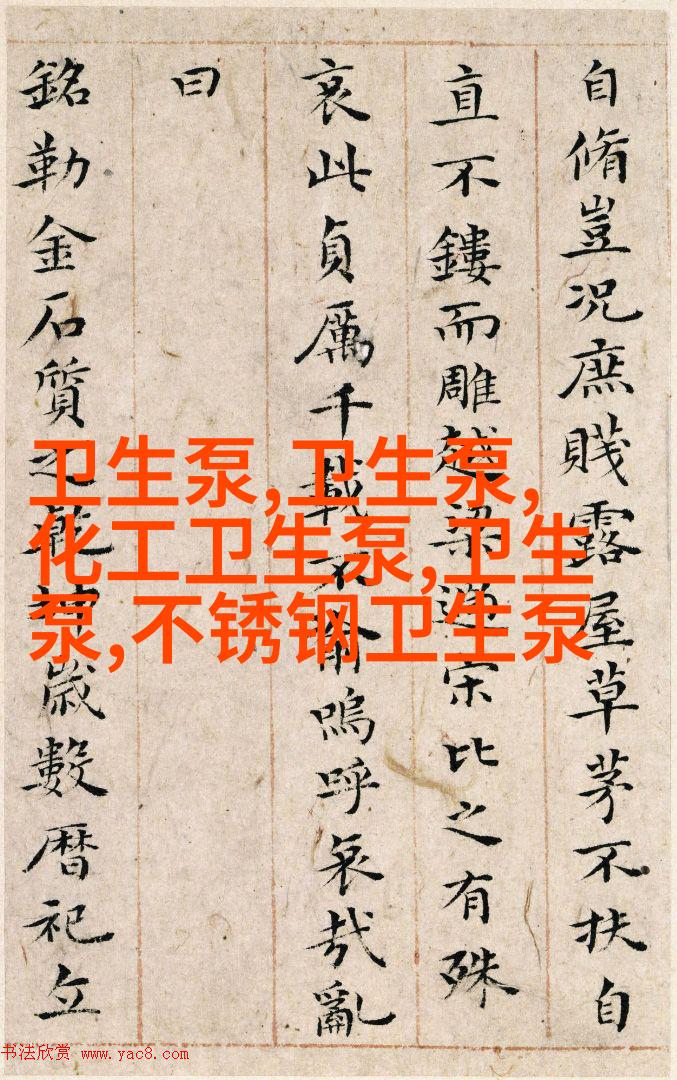 自脩豈況庶賤露屋草茅不扶自
直不鏤而雕越梁過宋比之有殊
哀此貞厲千載不渝嗚呼哀哉亂
曰
銘勒金石質之乾坤歲數曆祀立
卫生泵,卫生泵,
化工卫生泵,卫生
泵,不锈钢卫生泵
书法欣赏 www.yac8.com